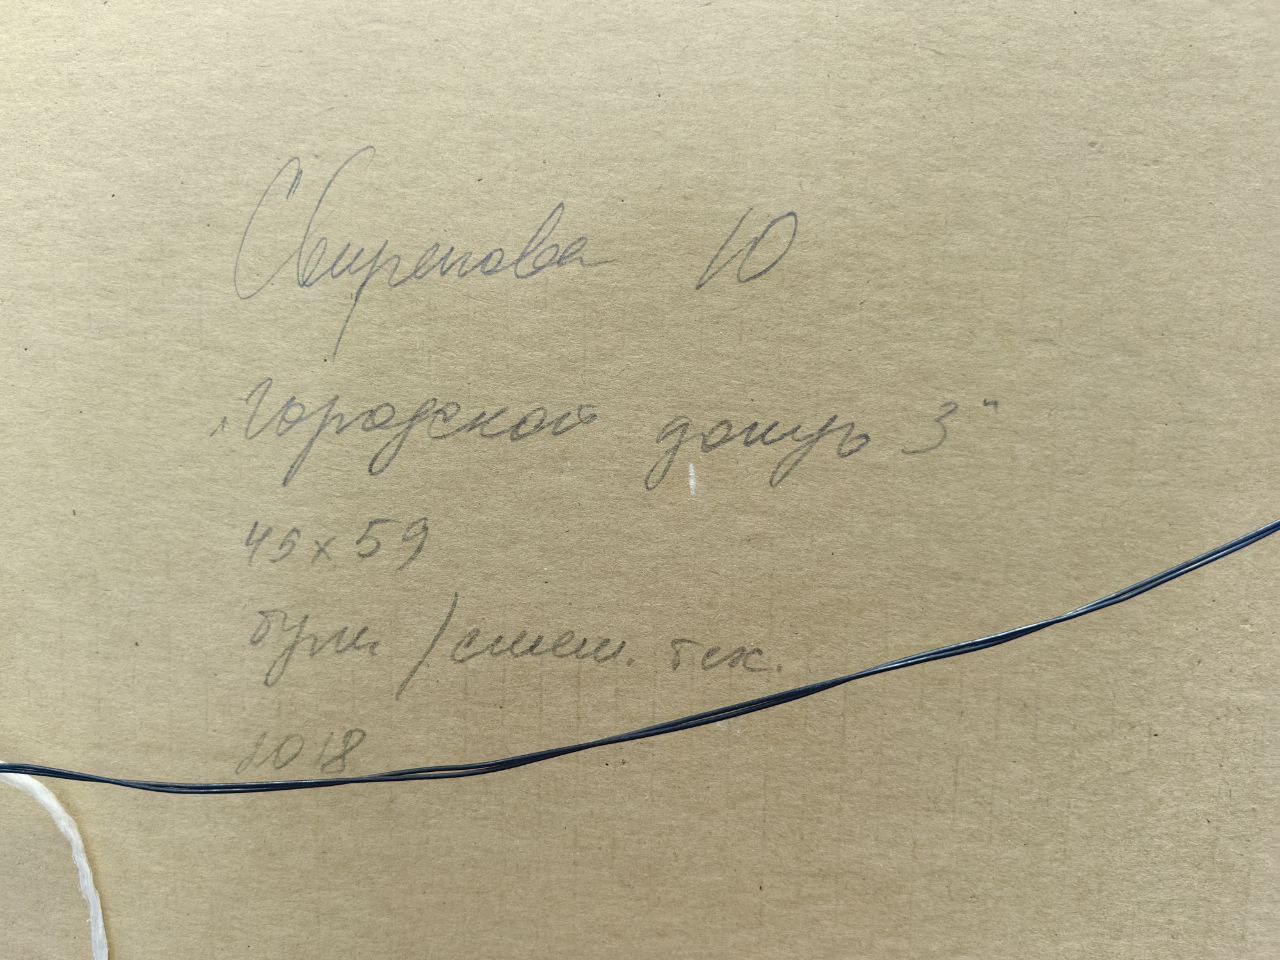 Свирепова Ю
„Городской дождь 3"
45х59
бум /смеш. тех.
2018